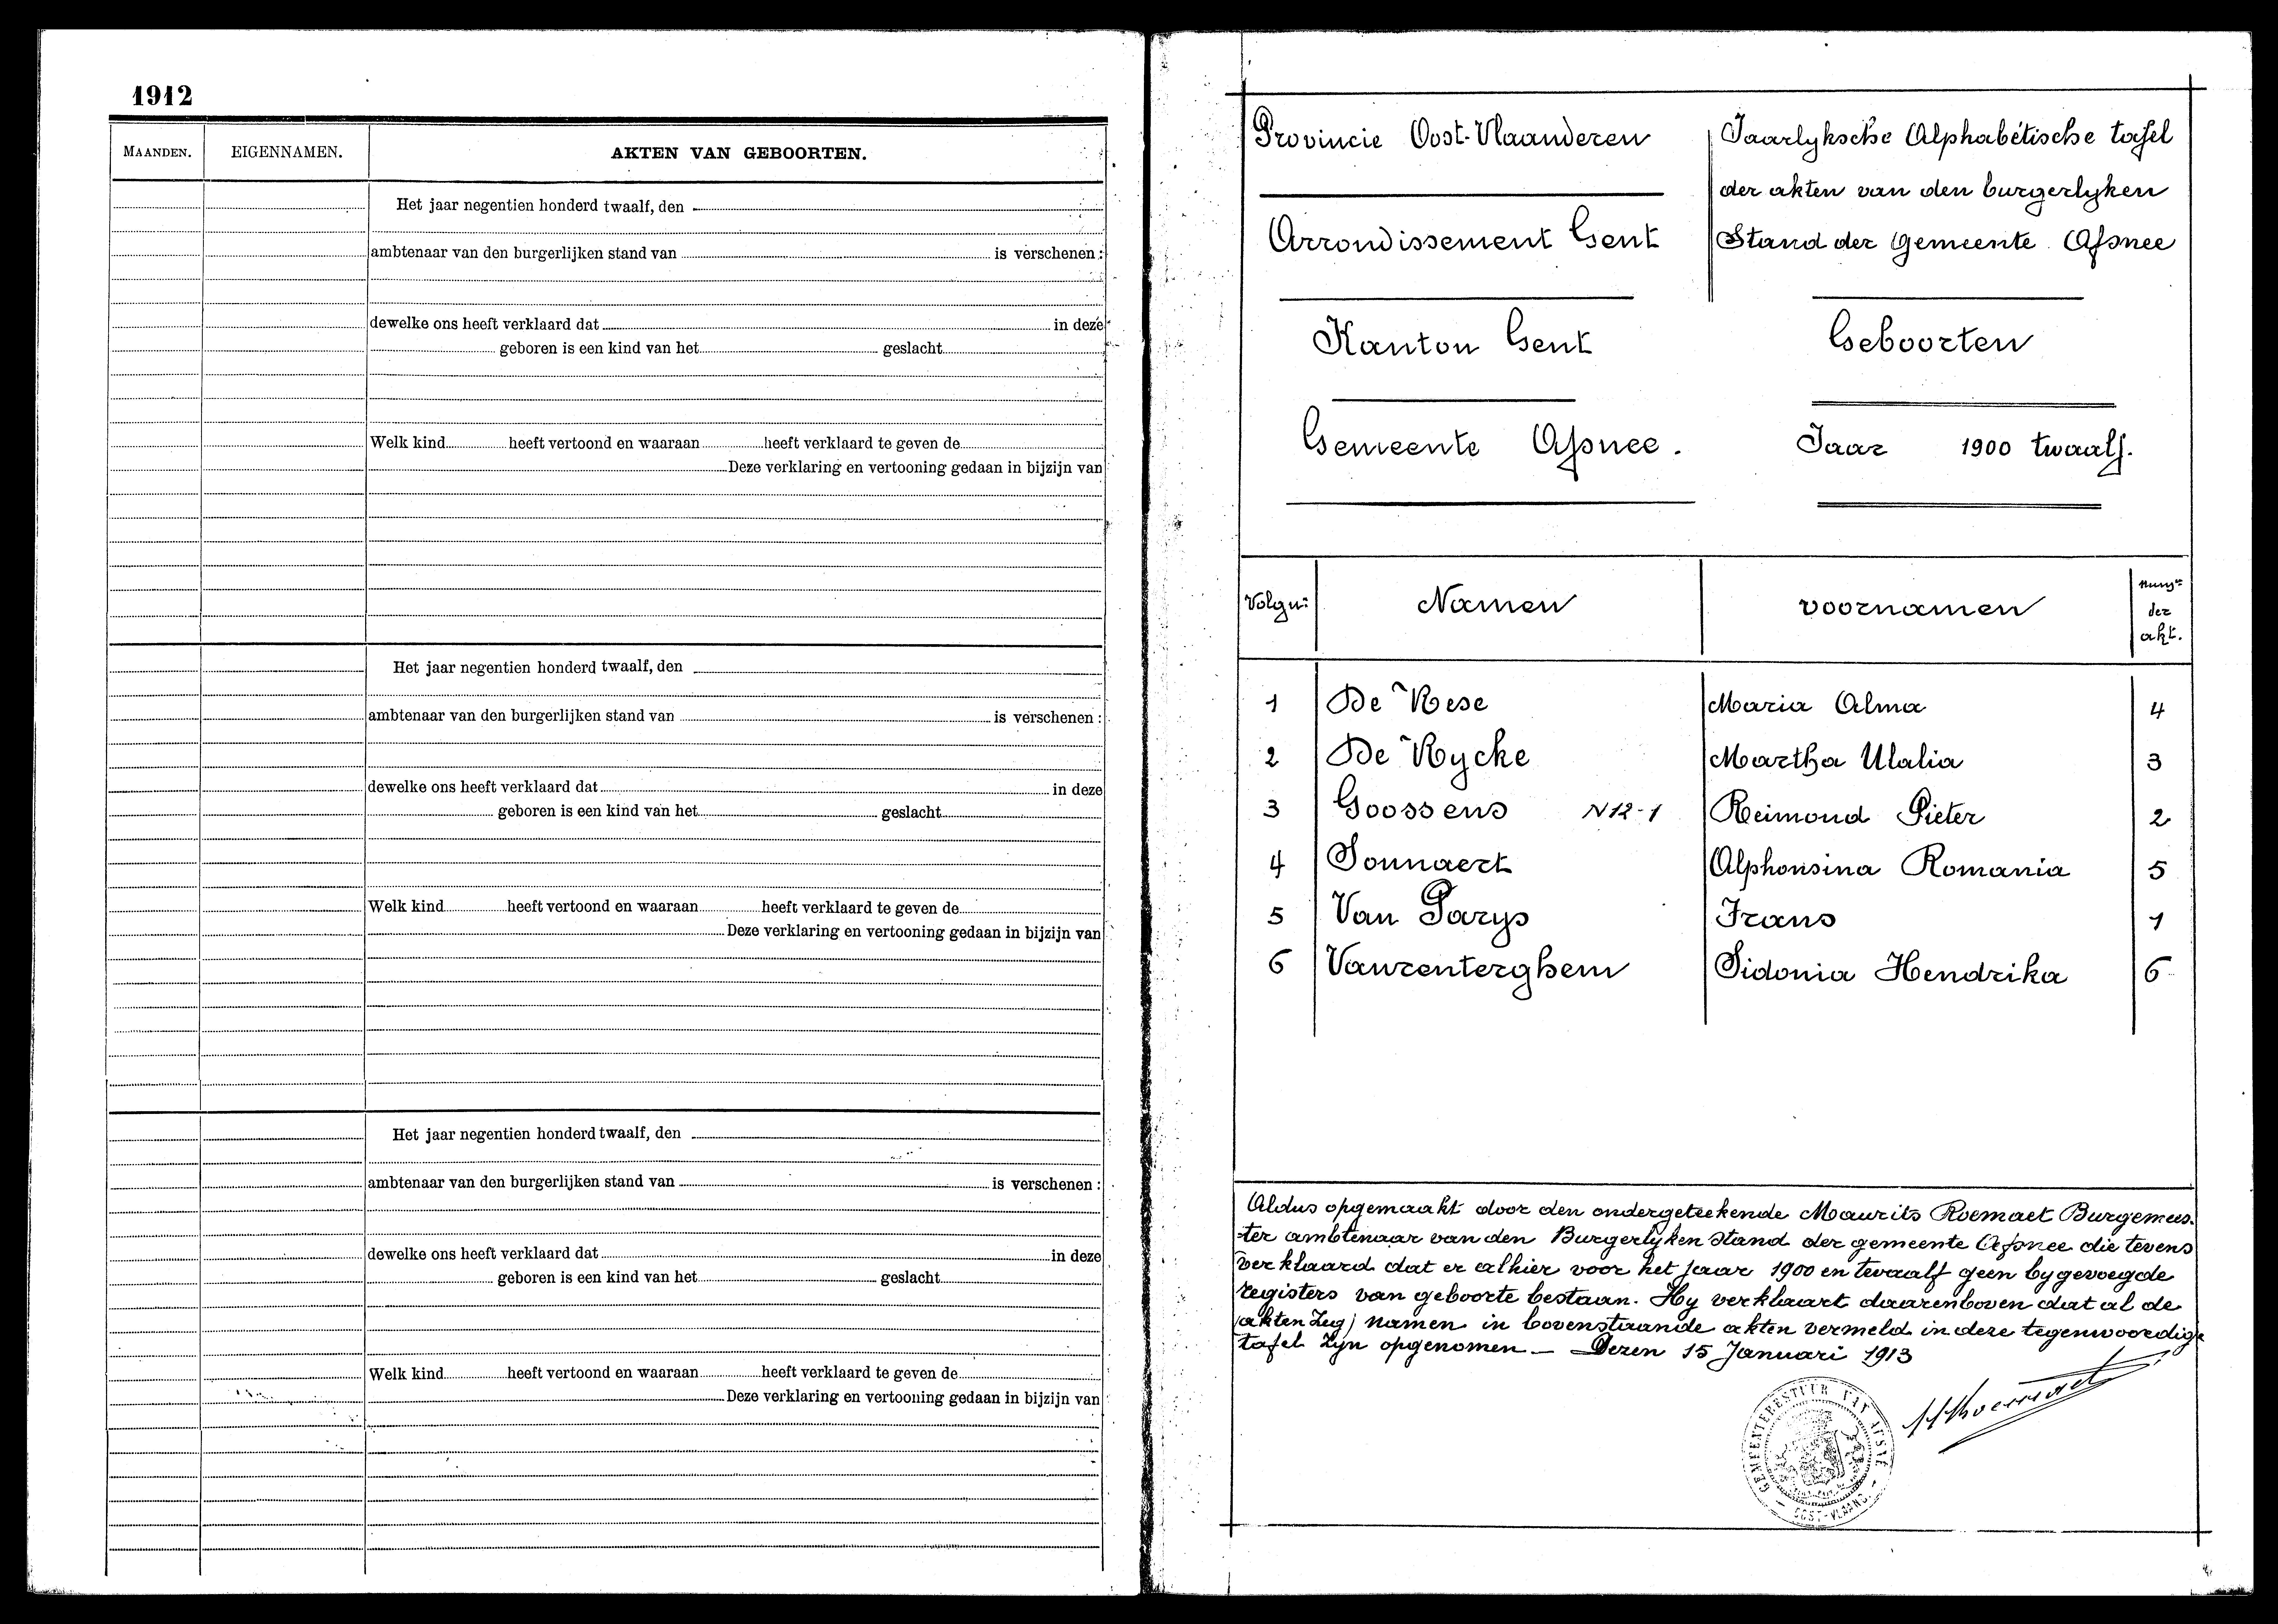 1912
MAANDEN. EIGENNAMEN. AKTEN VAN GEBOORTEN.
Het jaar negentien honderd twaalf, den
ambtenaar van den burgerlijken stand van is verschenen :
dewelke ons heeft verklaard dat in deze
geboren is een kind van het geslacht
Welk kind heeft vertoond en waaraan heeft verklaard te geven de
Deze verklaring en vertooning gedaan in bijzijn van
Het jaar negentien honderd twaalf, den
ambtenaar van den burgerlijken stand van is verschenen :
dewelke ons heeft verklaard dat in deze
geboren is een kind van het geslacht
Welk kind heeft vertoond en waaraan heeft verklaard te geven de
Deze verklaring en vertooning gedaan in bijzijn van
Het jaar negentien honderd twaalf, den
ambtenaar van den burgerlijken stand van is verschenen :
dewelke ons heeft verklaard dat in deze
geboren is een kind van het geslacht
Welk kind heeft vertoond en waaraan heeft verklaard te geven de
Deze verklaring en vertooning gedaan in bijzijn van
Provincie Oost-Vlaanderen
Arrondissement Gent
Kanton Gent
Gemeente Afsnee.
Jaarlyksche Alphabétische tafel
der akten van den burgerlyken
Stand der Gemeente Afsnee
Geboorten
Jaar 1900 twaalf.
Volgnr Namen voornamen
der
akt.
1 De Rese Maria Alma 4
2 De Rycke Martha Ulalia 3
3 Goossens N12-1 Reimond Pieter 2
4 Sonnaert Alphonsina Romania 5
5 Van Parys Frans 1
6 Vanrenterghem Sidonia Hendrika 6
Aldus opgemaakt door den ondergeteekende Maurits Roemaet Burgemees-
ter ambtenaar van den Burgerlyken stand der gemeente Afsnee die tevens
verklaard dat er alhier voor het jaar 1900 en twaalf geen bygevoegde
registers van geboorte bestaan. Hy verklaart daarenboven dat al de
(akten Zeg) namen in bovenstaande akten vermeld in deze tegenwoordige
tafel zyn opgenomen — Dezen 15 Januari 1913
MRoemaet
GEMEENTEBESTUUR VAN AFSNÉ
- OOST-VLAAND. -